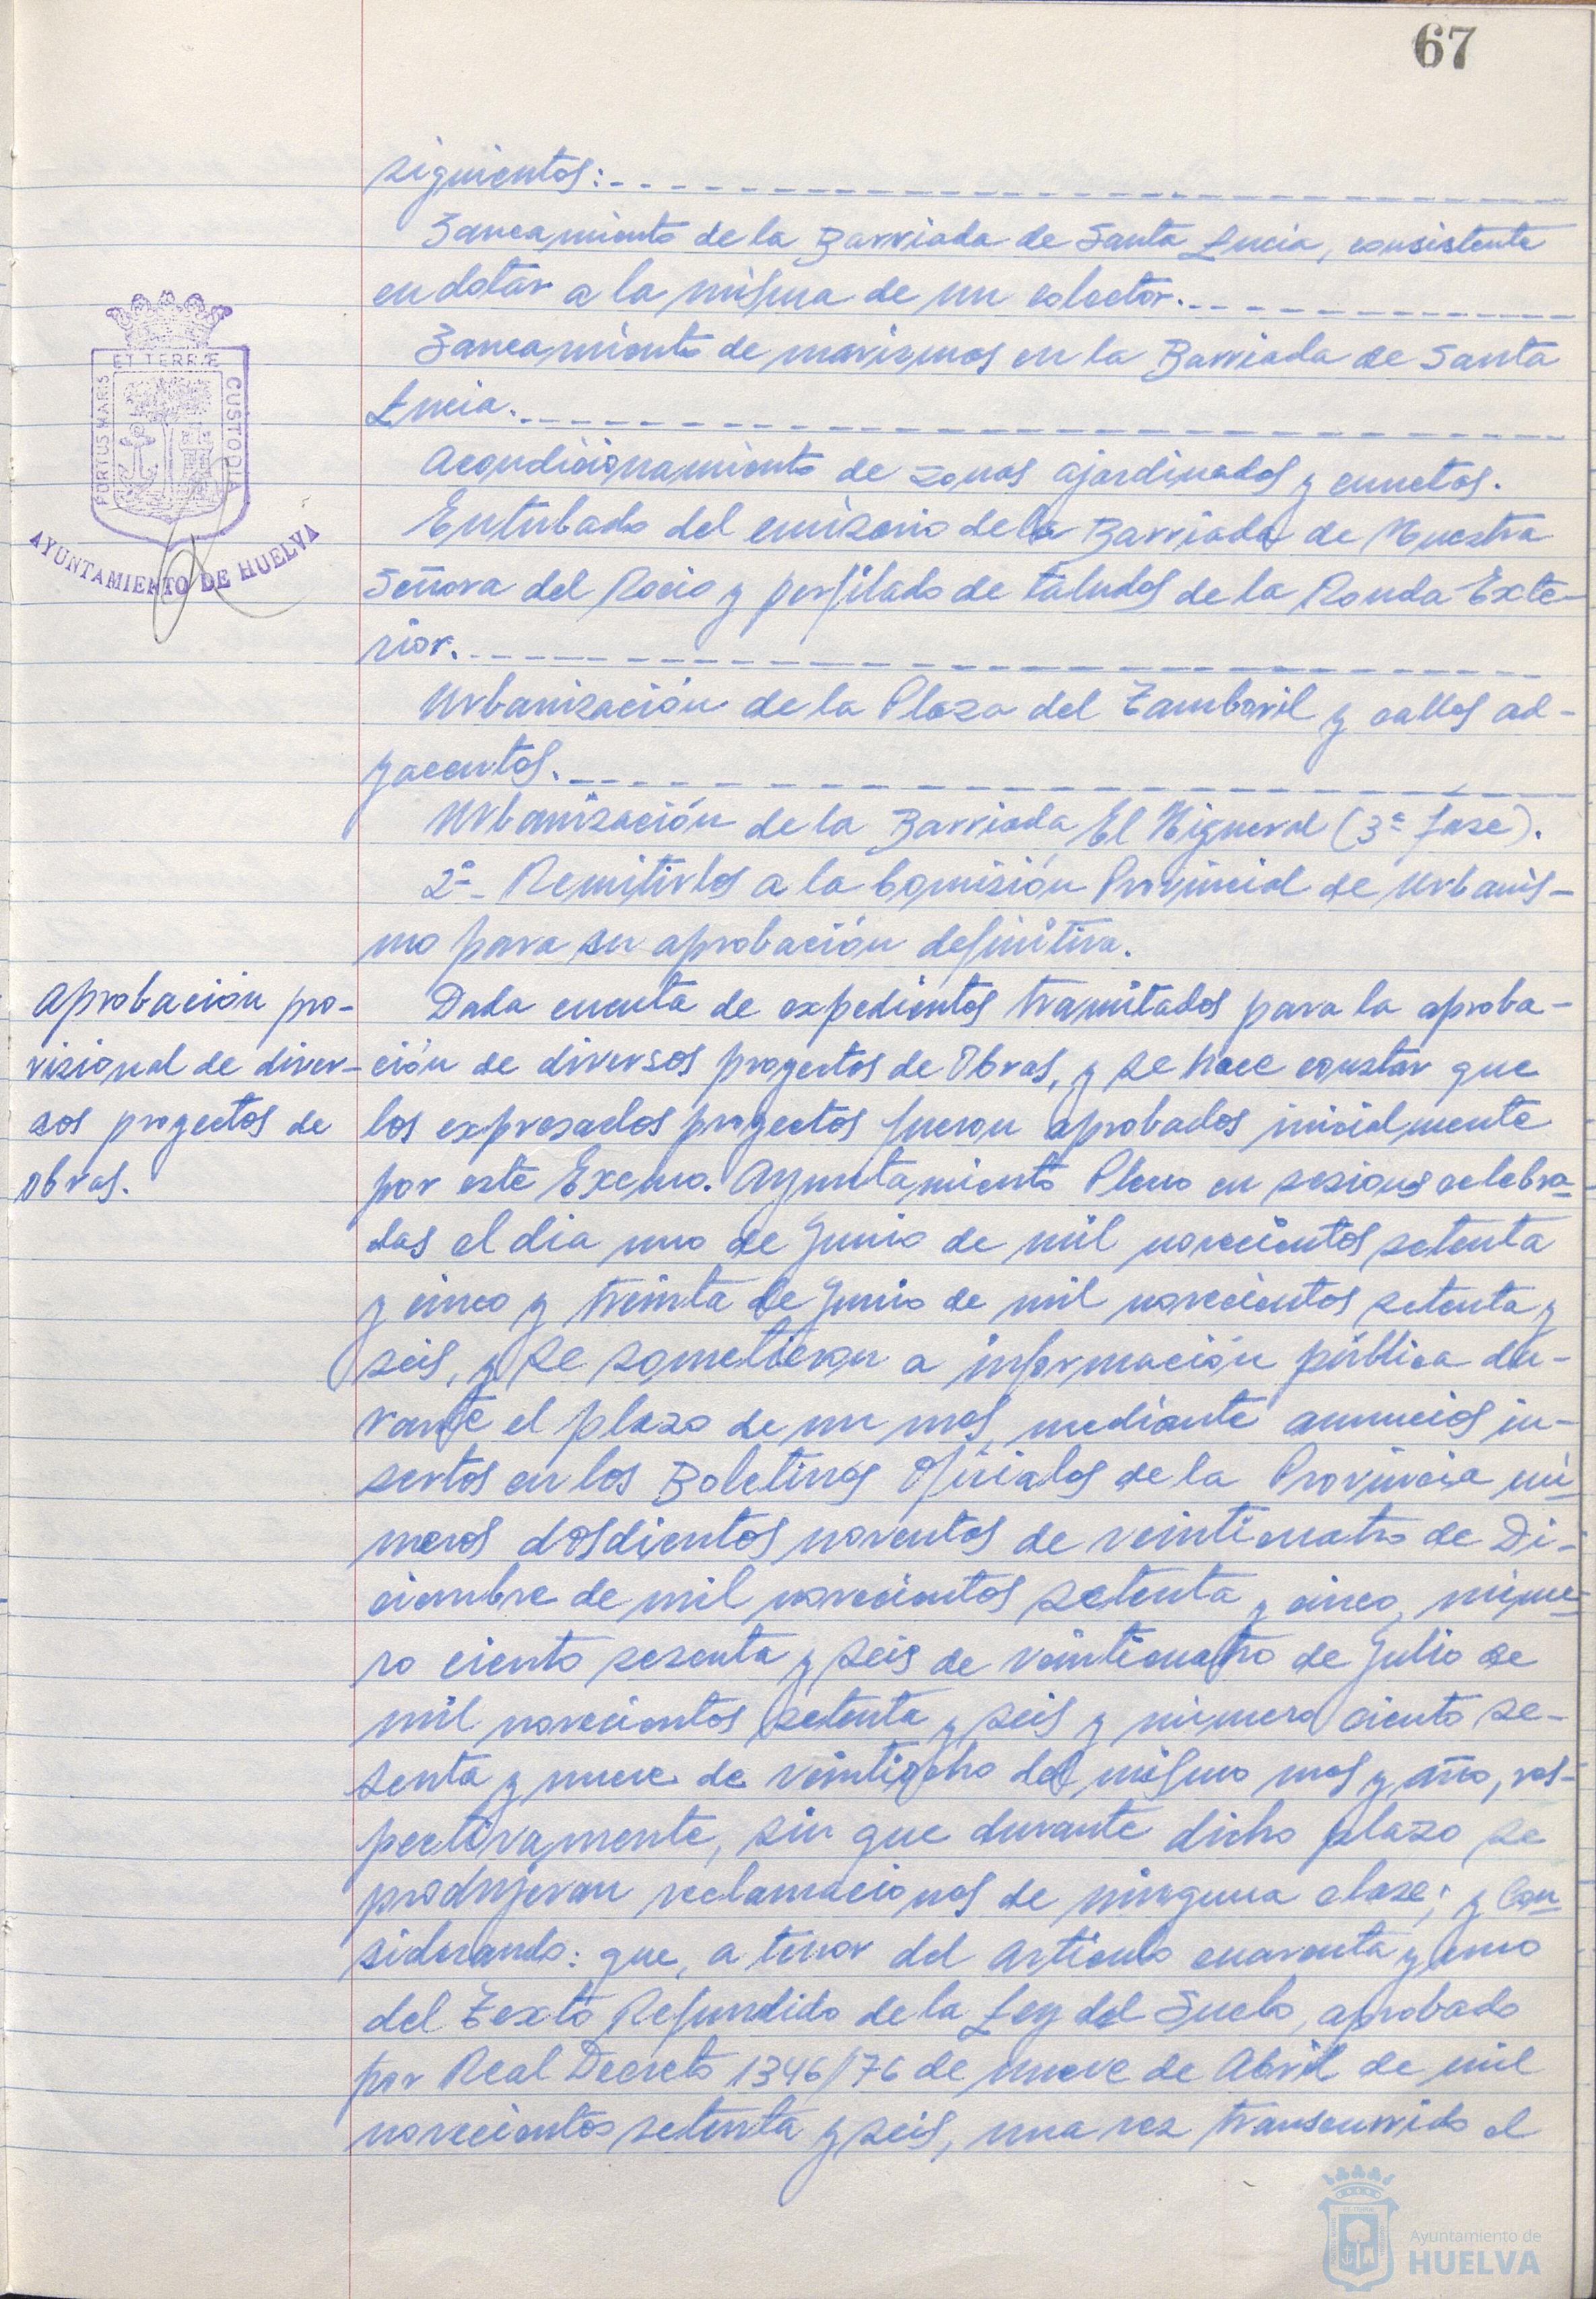 67
siguientes:
Saneamiento de la Barriada de Santa Lucia, consistente
en dotar a la misma de un colector.
Saneamiento de marismas en la Barriada de Santa
Lucia.
Acondicionamiento de zonas ajardinadas y cunetas.
Entubado del emisario de la Barriada de Nuestra
Señora del Rocio y perfilado de taludes de la Ronda Exte-
rior.
Urbanización de la Plaza del Tamboril y calles ad-
yacentes.
Urbanización de la Barriada El Higueral (3ª fase).
2º- Remitirlos a la Comisión Provincial de Urbanis-
mo para su aprobación definitiva.
Aprobación pro-
visional de diver-
sos proyectos de
obras.
Dada cuenta de expedientes tramitados para la aproba-
ción de diversos proyectos de Obras, y se hace constar que
los expresados proyectos fueron aprobados inicialmente
por este Excmo. Ayuntamiento Pleno en sesiones celebra-
das el dia uno de Junio de mil novecientos setenta
y cinco y treinta de Junio de mil novecientos setenta y
seis, y se sometieron a información pública du-
rante el plazo de un mes, mediante anuncios in-
sertos en los Boletines Oficiales de la Provincia nú-
meros dosdientos noventos de veinticuatro de Di-
ciembre de mil novecientos setenta y cinco, núme-
ro ciento sesenta y seis de veinticuatro de Julio de
mil novecientos setenta y seis y número ciento se-
senta y nueve de veintiocho del mismo mes y año, res-
pectivamente, sin que durante dicho plazo se
produjeran reclamaciones de ninguna clase; y Con-
siderando: que, a tenor del Artículo cuarenta y uno
del Texto Refundido de la Ley del Suelo, aprobado
por Real Decreto 1346/76 de nueve de Abril de mil
novecientos setenta y seis, una vez transcurrido el
PORTUS MARIS
ET TERRÆ
CUSTODIA
AYUNTAMIENTO DE HUELVA
Ayuntamiento de
HUELVA